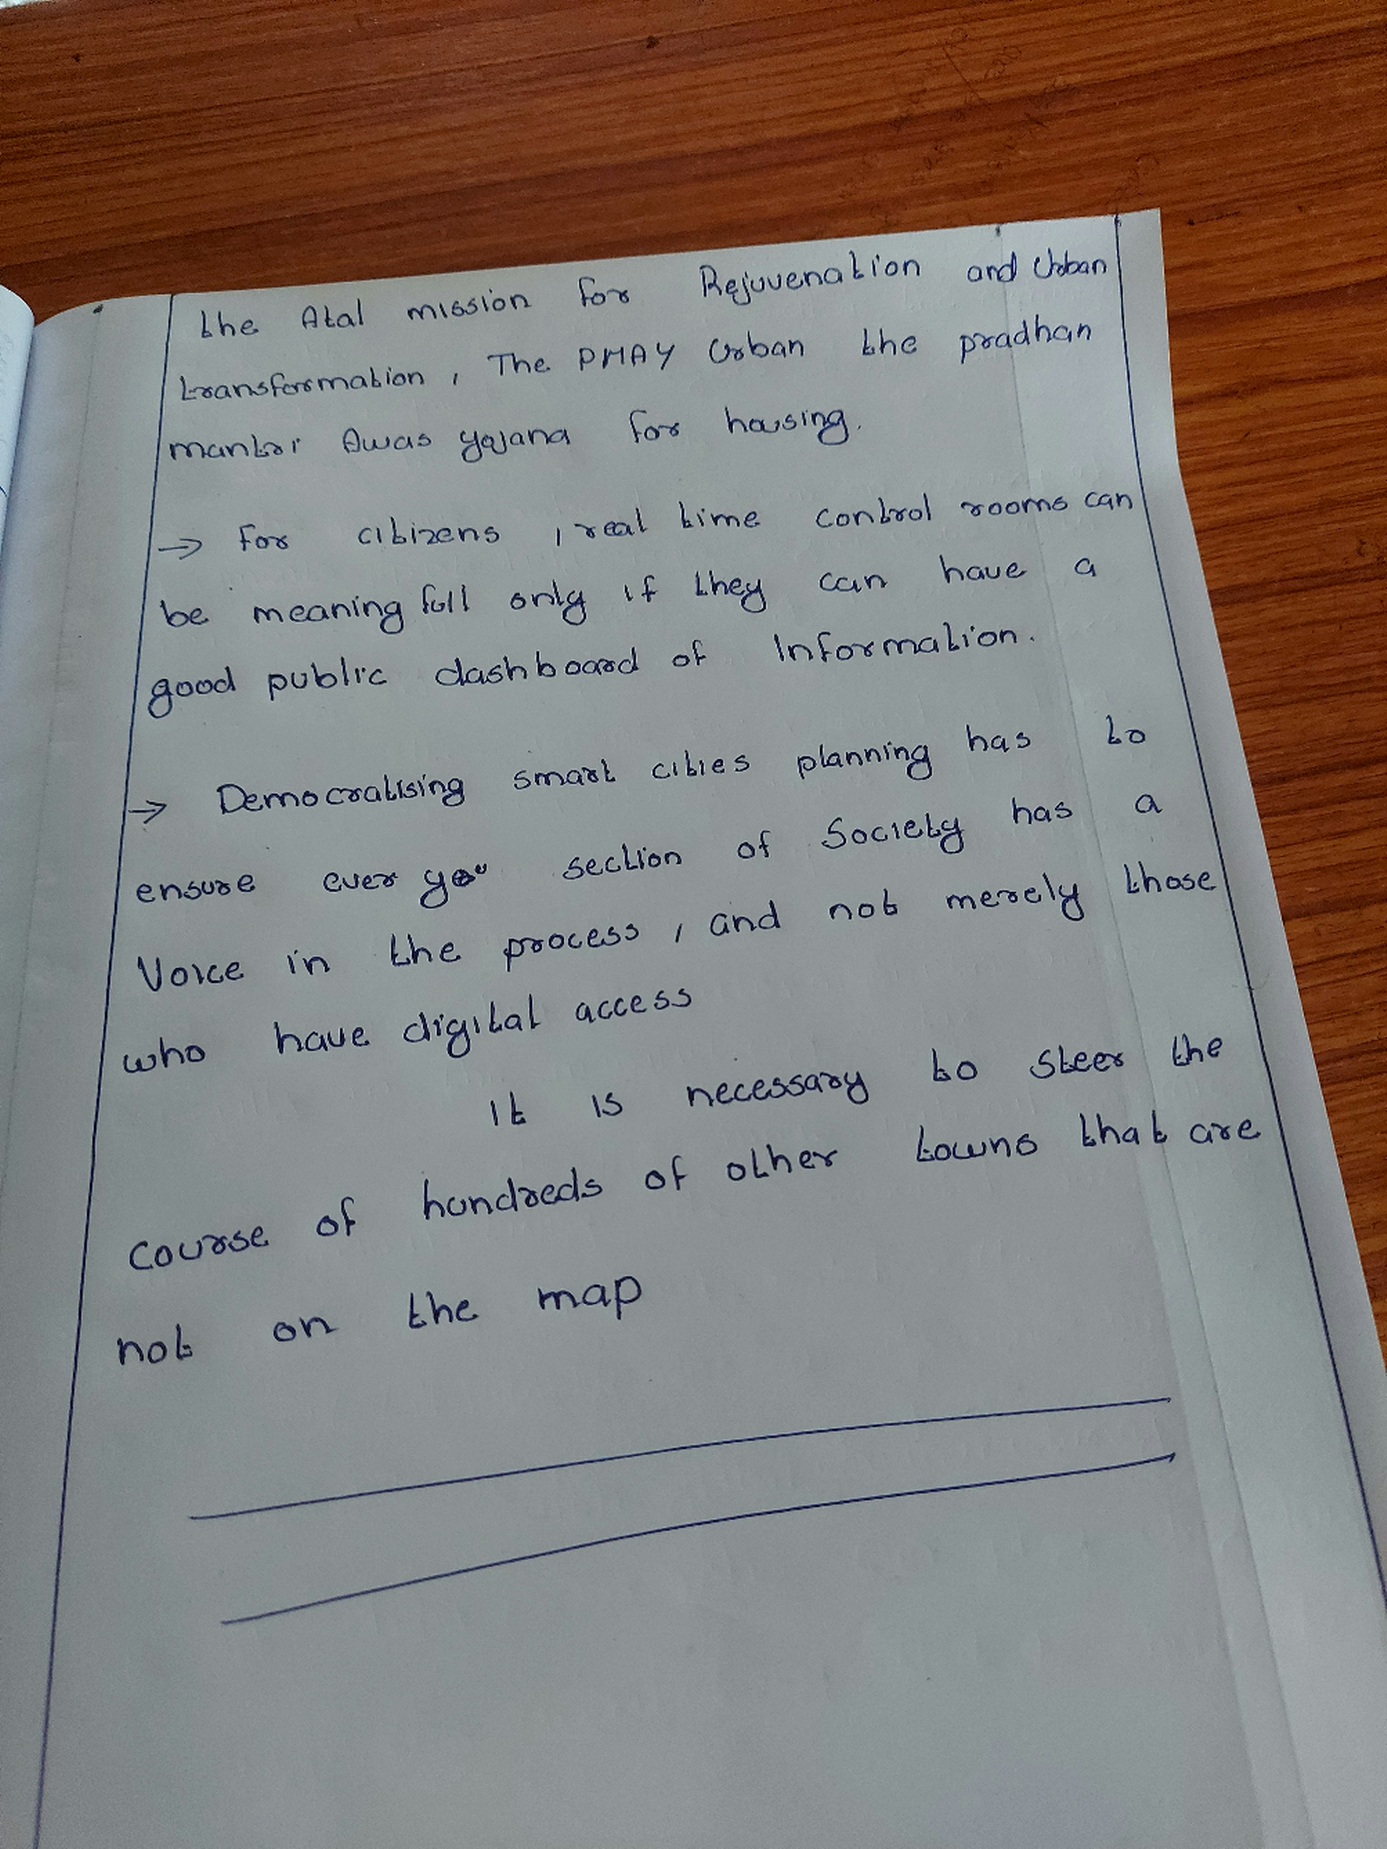 the Atal mission for Rejuvenation and Urban
transformation, The PMAY Urban the pradhan
mantri Awas yojana for housing.
→ For citizens, real time control rooms can
be meaning full only if they can have a
good public dashboard of Information.
→ Democratising smart cities planning has to
ensure ever section of Society has a
Voice in the process, and not merely those
who have digital access
It is necessary to steer the
Course of hundreds of other towns that are
not on the map